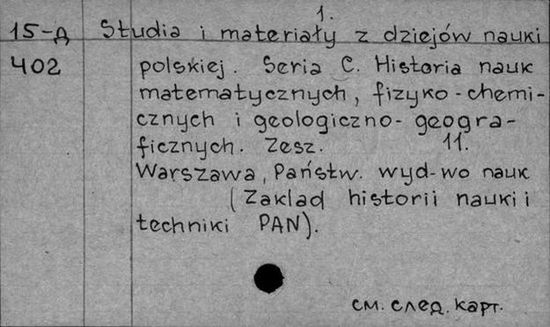 1.
15-д Studia i materiały z dziejów nauki
402 polskiej. Seria C. Historia nauk
matematycznych, fizyko-chemi-
cznych i geologiczno-geogra-
ficznych. Zesz. 11.
Warszawa, Państw. wyd-wo nauk
(Zaklad historii nauki i
techniki PAN).
см. след. карт.